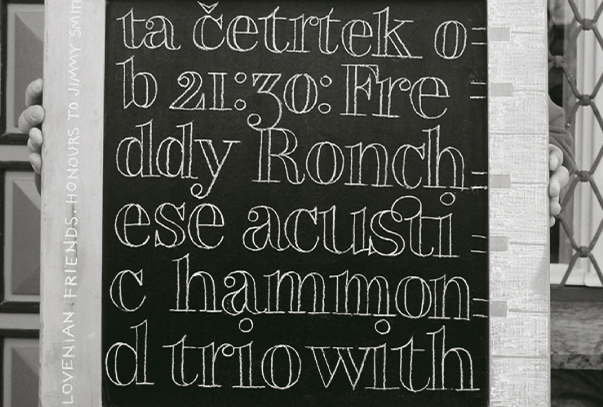 ta četrtek o=
b 21:30: Fre=
ddy Ronch=
ese acusti=
c hammon=
d trio with
LOVENIAN FRIENDS. HONOURS TO JIMMY SMIT